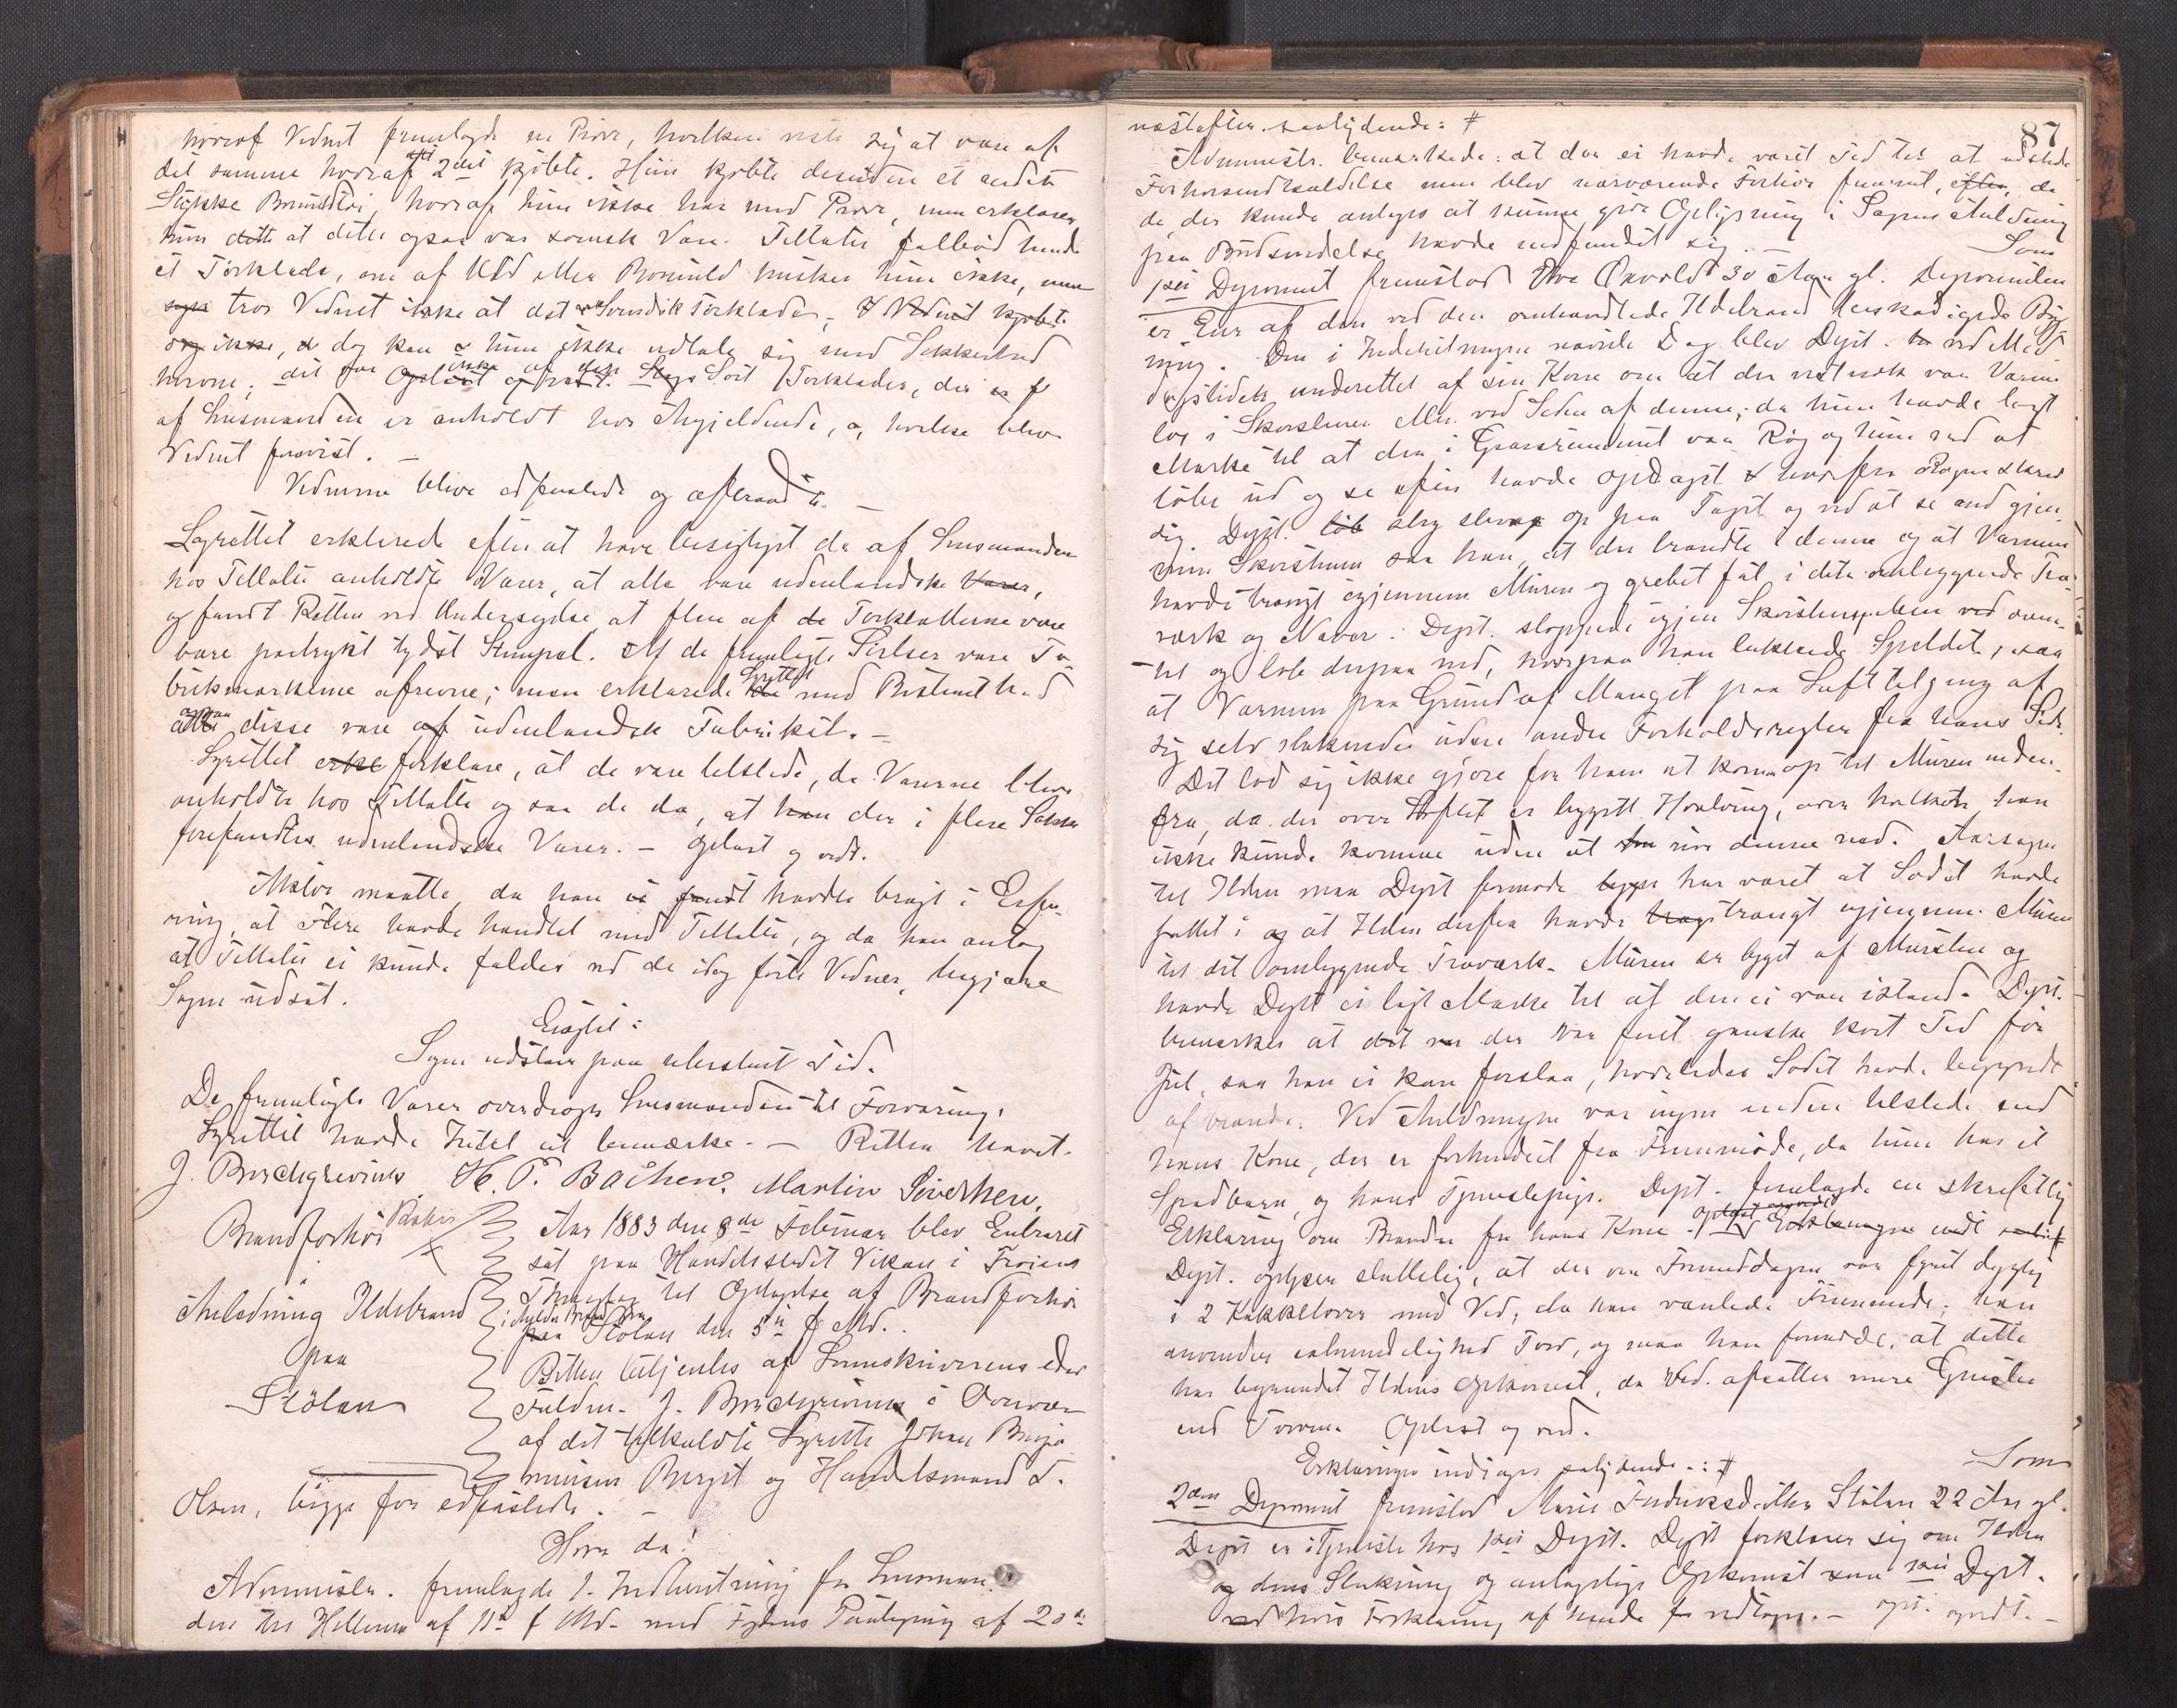 hvoraf Vidnet fremlagde en Prøve, hvilken viste sig at være af
det samme hvoraf 2det kjøbte. Hun kjøbte desuden et andet
Stykke Bomuldstøi, hvoraf hun ikke har med Prøve, men erklærer
hun at dette ogsaa var svensk Vare. Tiltalte falbød hende
et Tørklæde, om af Uld eller Bomuld husker hun ikke, men
tror Vidnet ikke at det var Svendsk Tørklæde, Vidnet kjøbte
ikke, dog kan hun ikke udtale sig med Sikkerhed
herom; det var ikke af den Sort Tørklæder, der
af Lensmanden er anholdt hos Angjeldende, og hvilke blev
Vidnet forevist. —
Vidnerne bleve edfæstede og aftraadte. —
Lagrettet erklærede efter at have besigtiget de af Lensmanden
hos Tiltalte anholdte Varer, at alle vare udenlandske Varer,
og fandt Retten ved Undersøgelse at flere af de Tørklæderne vare
bare paatrykt tydsk Stempel. Af de fremlagte Sirtser vare Fa-
brikmærkerne afrevne; men erklærede Lagrettet med Bestemthed
at ogsaa disse vare af udenlandsk Fabrikat. —
Lagrettet forklare, at de vare tilstede, da Varerne bleve
anholdte hos Tiltalte og saa de da, at der i flere Sække
forefandtes udenlandske Varer. — Oplæst og vedt.
Aktor maatte, da han havde bragt i Erfa-
ring, at Flere havde handlet med Tiltalte, og da han antog
at Tiltalte ei kunde fældes ved de idag førte Vidner, begjære
Sagen udsat.
Eragtet:
Sagen udstaar paa ubestemt Tid.
De fremlagte Varer overdroges Lensmanden til Forvaring.
Lagrettet havde Intet at bemærke. — Retten hævet.
J. Borchgrevink H. P. Bachen. Martin Sivertsen
Brandforhør
Anledning Ildebrand
paa
Stölan
Aar 1883 den 8de Februar blev Extraret
sat paa Handelsstedet Vikan i Frøiens
Thinglag til Optagelse af Brandforhør
i Anledn Brand paa Stölan den 5te f Md.
Retten betjentes af Sorenskriverens edsv
Fuldm. J. Borchgrevink i Overvær
af det tilkaldte Lagrette Johan Benja-
minsen Bergit og Handelsmand L.
Olsen, begge før edfæstede. —
Hvor da!
Administr. fremlagde 1. Indberetning fra Lensman-
den Hellesen af 11te f Md. med Fogdens Paategning af 20de
87
næstefter. saalydende: #
Administr. bemærkede: at der ei havde været Tid til at udstede
Forhørsindkaldelse men blev nærværende Forhør fremmet, da
de, der kunde antages at kunne give Oplysning i Sagens Anledning
paa Budsendelse havde indfundet sig. —
Som
1ste Deponent fremstod Ove Qvvold 30 Aar gl. Deponenten
er Eier af den ved den omhandlede Ildebrand beskadigede Byg-
ning. Den i Indberetningen nævnte Dag blev Dept. ved Mid-
dagstider underrettet af sin Kone om at der nok var Varme
løs i Skorstenen eller ved Siden af denne; da hun havde lagt
Mærke til at der i Gaardsrummet var Røg og hun ved at
løbe ud og se efter havde opdaget hvorfra Røgen skrev
sig. Dept. steg strax op paa Taget og ved at se ned gjen-
nem Skorstenen saa han, at der brændte i denne og at Varmen
havde trængt igjennem Muren og grebet fat i dets omliggende Træ-
værk og Never. Dept. stoppede igjen Skorstenspiben ved oven-
til og løb derpaa ned, hvorpaa han lukkede Speldet, saa
at Varmen paa Grund af Mangel paa Lufttilgang af
sig selv slukkedes uden andre Forholdsregler fra hans Side.
Det lod sig ikke gjøre for ham at komme op til Muren neden-
fra, da der over Loftet er bygget Hvælving, over hvilken han
ikke kunde komme uden at rive denne ned. Aarsagen
til Ilden maa Dept formode har været at Sodet havde
fattet i og at Ilden derfra havde trængt igjennem Muren
til det omliggende Træværk. Muren er bygget af Mursten og
havde Dept ei lagt Mærke til at den ei var istand. Dept.
bemærker at det var feiet ganske kort Tid før
Jul, saa han ei kan forstaa, hvorledes Sodet havde begyndt
at brænde. Ved Anledningen var ingen anden tilstede end
hans Kone, der er forhindret fra Fremmøde, da hun har et
Spædbarn, og hans Tjenestepige. Dept. fremlagde en skriftlig
Erklæring om Branden fra hans Kone.
Dept. oplyser sluttelig, at der om Formiddagen var fyret dygtig
i 2 Kakkelovne med Ved, da han ventede Fremmede; han
anvender almindelighed Torv, og maa han formode, at dette
har begrundet Ildens Opkomst, da Ved afsætter mere Gnister
end Torven. Oplæst og ved.
Erklæringen indtages saalydende: #
Som
2den Deponent fremstod Marie Fredriksdatter Stölan 22 Aar gl.
Dept er i Tjeneste hos 1ste Dept. Dept forklarer sig om Ilden
og dens Slukning og antagelige Opkomst som 1ste Dept.
hvis Forklaring af hende er vedtagen. — opl. ogvedt. —